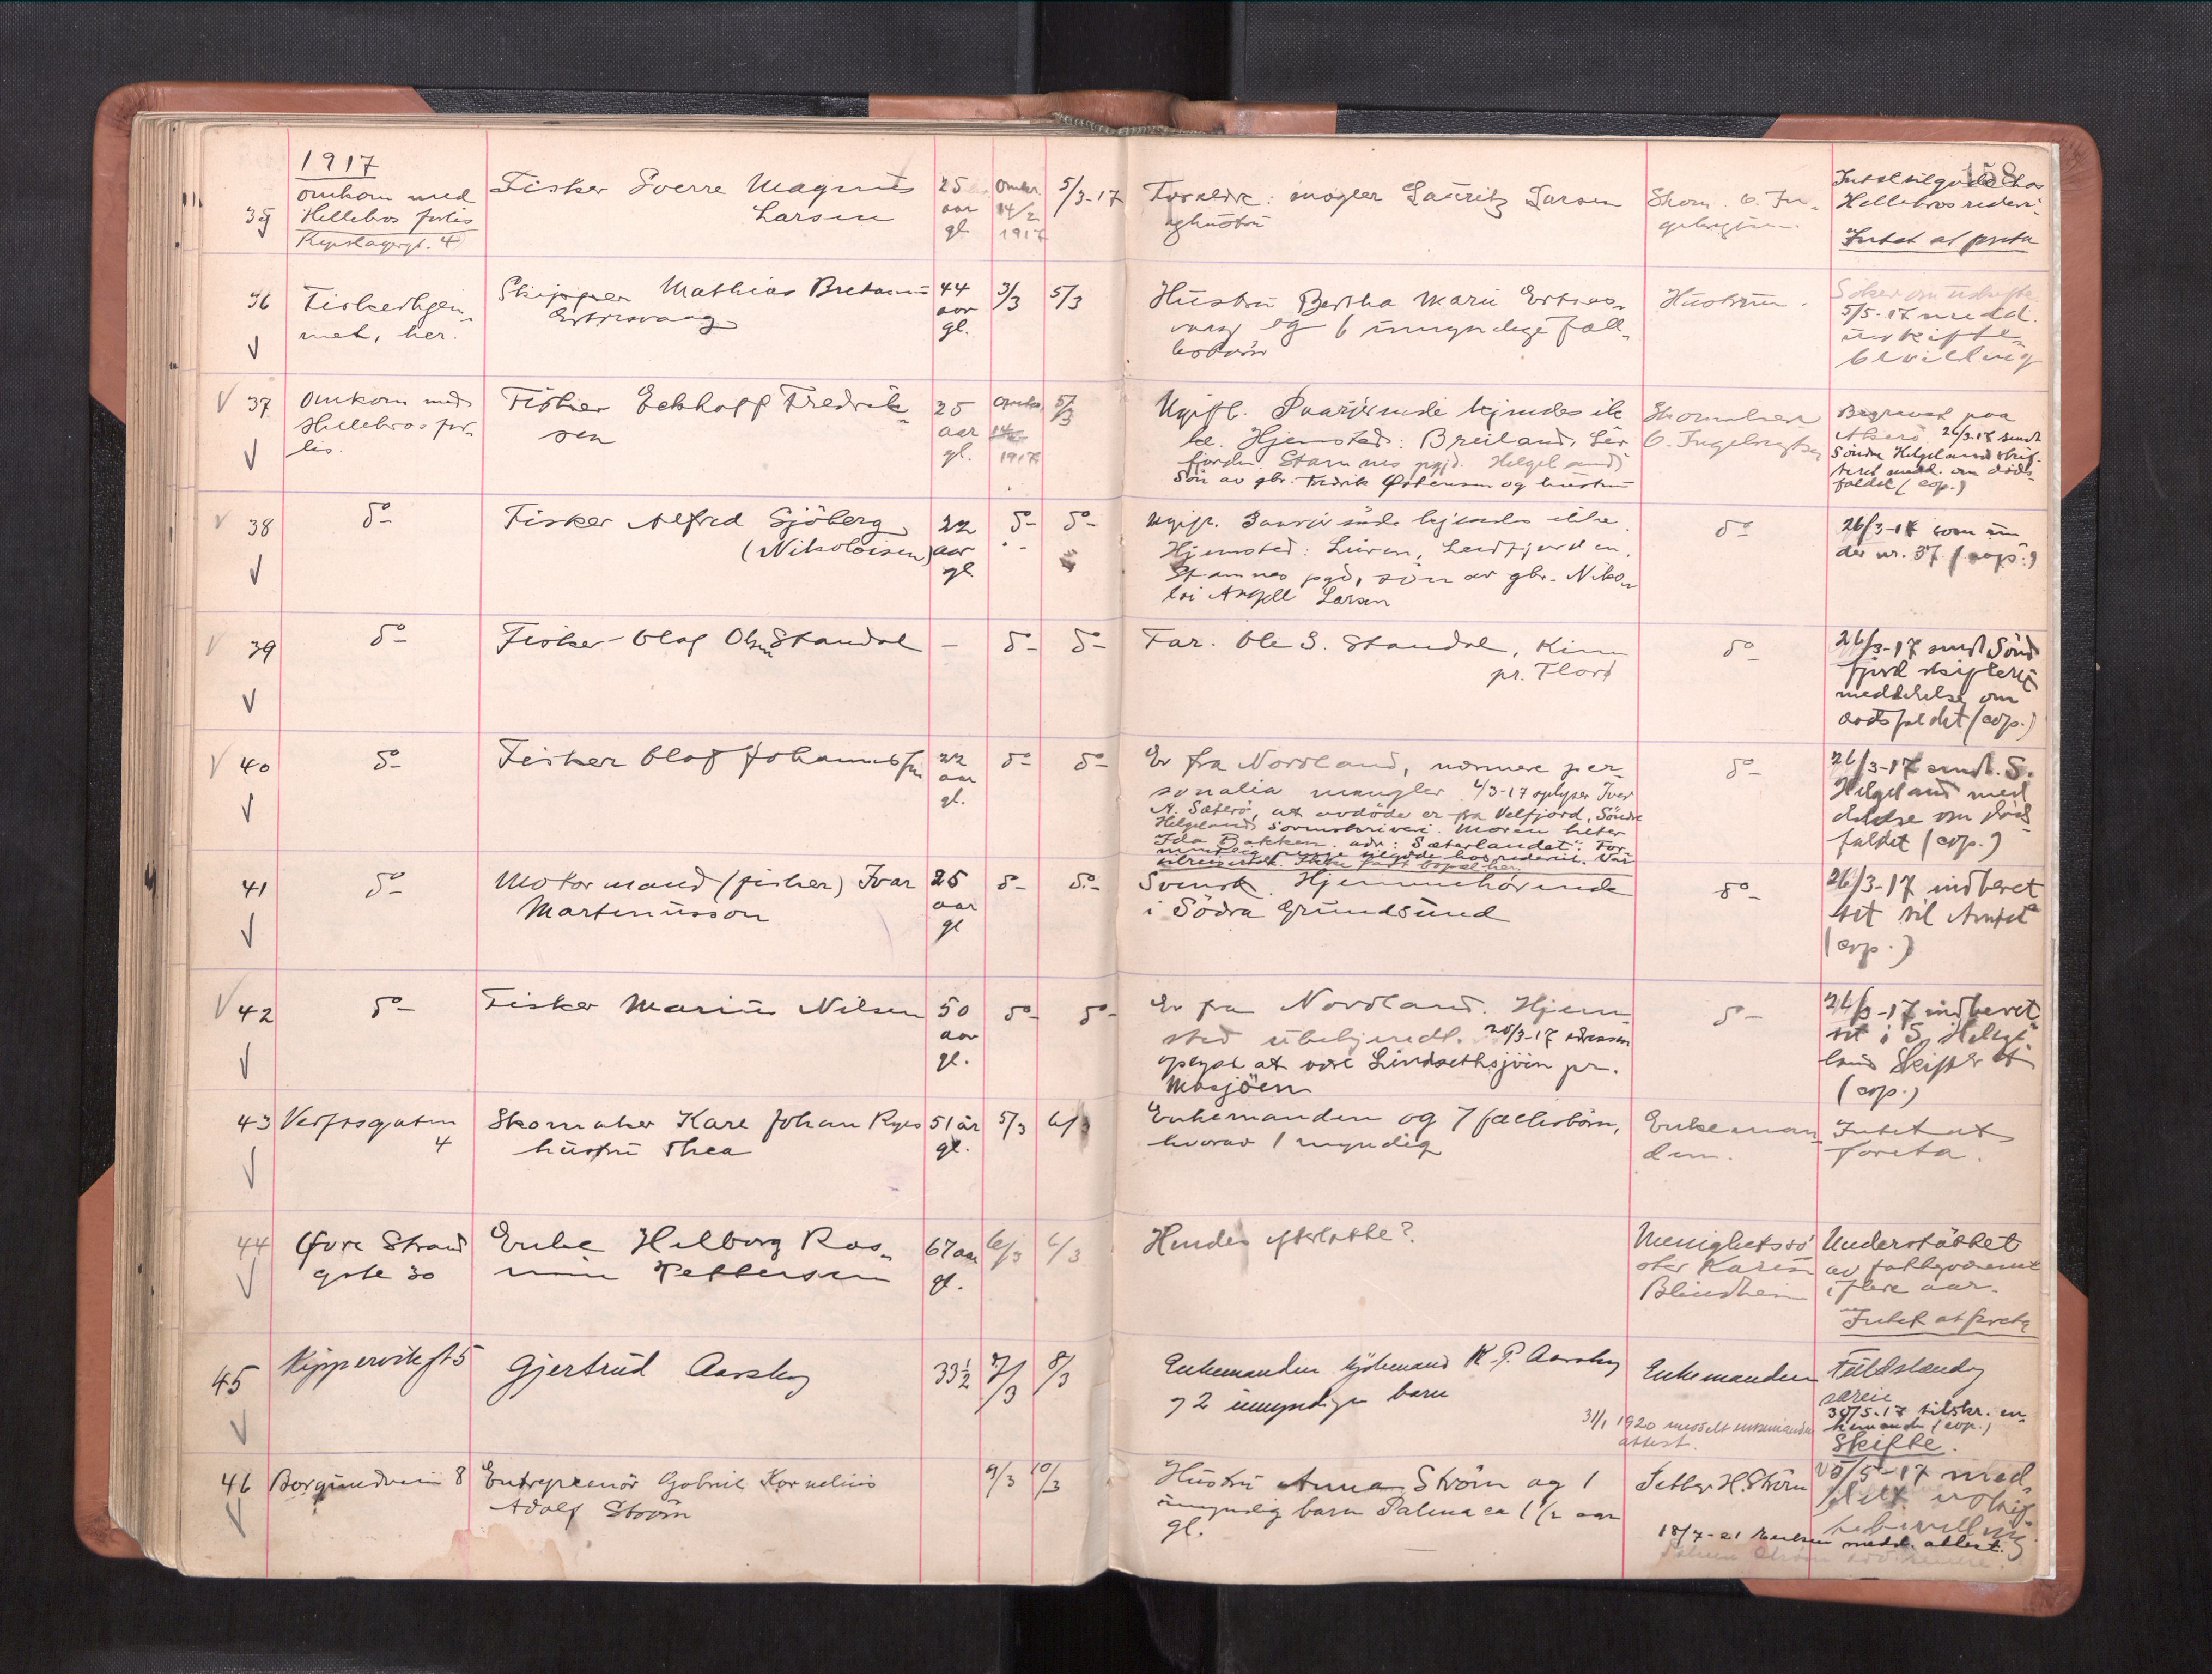 1917
158
35
omkom med
Hellebros forlis
Repslagergt. 4
Fisker Sverre Magnus
Larsen
25
aar
gl.
omk.
14/2
1917
5/3-17
Forældre: mægler Lauritz Larsen
og hustru
Skom. O. In-
gebrigtsen
Intet tilgode hos
Hellebros rederi.
Intet at foreta
36
Fiskerhjem-
met, her.
Skipper Mathias Bretanus
Ertresvaag
44
aar
gl.
3/3
5/3
Hustru Bertha Marie Ertres-
vaag og 6 umyndige fæll-
esbørn
Hustruen.
Søker om uskifte
5/5-17 medd.
uskifte-
bevilling
37
Omkom med
Hellebros for-
lis.
Fisker Eckhoff Fredrik-
sen
25
aar
gl.
omk.
14/2
1917
5/3
Ugift. Paarørende kjendes ik
ke. Hjemsted: Breiland, Leir
fjorden. Stamnes pgjd. Helgeland
Søn av gbr. Fredrik Østensen og hustru
Skomaker
O. Ingebrigtsen
Begravet paa
26/3-17 sendt
Søndre Helgeland skif-
teret medd. om døds-
faldet (cop.)
38
do
Fisker Alfred Sjöberg
(Nikolaisen)
22
aar
gl
do
do
Ugift. Paarørende kjendes ikke.
Hjemsted: Leirfjorden,
Stamnes pgd, søn av gbr. Niko-
lai Angell Larsen
do
26/3-17 som un
der nr. 37 (cop.)
39
do
Fisker Olaf Olsen Standal
-
do
do
Far. Ole S. Standal, Kinn
pr. Florø
do
26/3-17 sendt Sönd
fjord skifteret
meddelelse om
dødsfaldet (cop.)
40
do
Fisker Olaf Johannessen
22
aar
gl.
do
do
Er fra Nordland, nærmere per-
sonalia mangler. 4/3-17 oplyser Ivar
N. Sæterö, at avdöde er fra Velfjord, Söndre
Helgeland Sorenskriveri. Moren heter
Ida Bakken. adr: Sæterlandet. For-
mentlig penge tilgode hos rederiet. Var
tilreisende. Ikke fast bopæl her.
do
26/3-17 sendt. S.
Helgeland med
delelse om döds
faldet (cop.)
41
do
Motormand (fisker) Ivar
Martinusson
25
aar
gl
do
do
Svensk. Hjemmehörende
i Södra Grundsund
do
26/3-17 indberet
tet til Amtet
(cop.)
42
do
Fisker Marius Nilsen
50
aar
gl.
do
do
Er fra Nordland. Hjem
sted ubekjendt. 20/3-17 adressen
oplyst at være Lindsethsjöen pr.
Mosjöen
do
26/3-17 indberet
tet i S. Helge-
land Skifteret
(cop.)
43
Verftsgaten
4
Skomaker Kare Johan Ryes
hustru Thea
51 år
gl.
5/3
6/3
Enkemanden og 7 fællesbörn,
hvorav 1 myndig
Enkeman-
den.
Intet at
foreta.
44
Øvre Strand
gate 30
Enke Helborg Ras-
mine Pettersen
67 aar
gl.
6/3
6/3
Hendes efterlatte?
Menighetssö
ster Karen
Blindheim
Understöttet
av fattigvæsenet
i flere aar.
Intet at foreta
45
Kippervikgt 5
Gjertrud Aarskog
33 1/2
7/3
8/3
Enkemanden sjömand K. P. Aarskog
og 2 umyndige barn
31/1 1920 meddelt enkemanden
attest.
Enkemanden
Fuldstændig
særeie
30/5-17 tilskr. en-
kemanden (cop.)
Skifte.
46
Borgundveien 8
Entreprenör Gabriel Kornelius
Adolf Ström
9/3
10/3
Hustru Anna Ström og 1
umyndig barn Palma ca 1 1/2 aar
gl.
H. Ström
/5-17 med-
delt uskif-
tebevilling
18/7-21 Enken medd. attest.